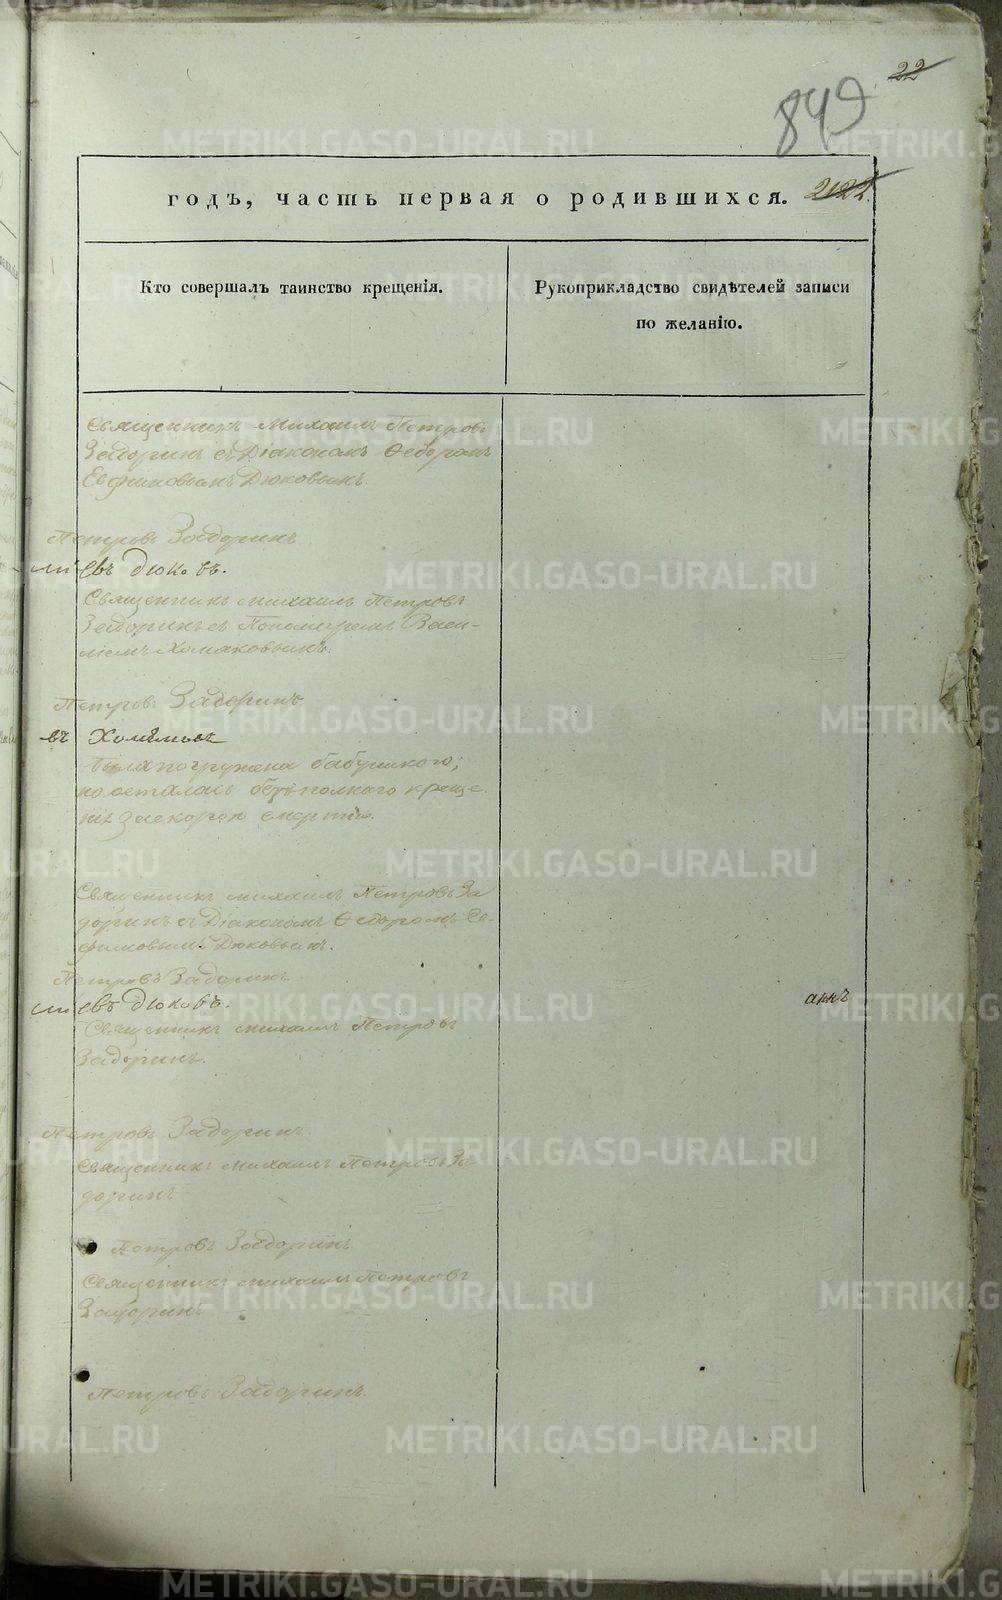 22
849
годъ, часть первая о родившихся.
2122.
Кто совершалъ таинство крещенія.
Рукоприкладство свидѣтелей записи
по желанію.
Священникъ Михаилъ Петровъ
Задоринъ съ Діакономъ Ѳедоромъ
Евфимовымъ Дюковымъ.
Петровъ Задоринъ
евъ Дюковъ.
Священникъ Михаилъ Петровъ
Задоринъ съ Пономаремъ Васи-
ліемъ Хомяковымъ.
Петровъ Задоринъ
въ Хомяковъ
была погружена бабушкою;
но осталась безъ полнаго креще
нія за скорою смертію.
Священникъ Михаилъ Петровъ За
доринъ съ Діакономъ Ѳедоромъ Ев-
фимовымъ Дюковымъ.
Петровъ Задоринъ
евъ Дюковъ.
аннъ
Священникъ Михаилъ Петровъ
Задоринъ.
Петровъ Задоринъ
Священникъ Михаилъ Петровъ За
доринъ
Петровъ Задоринъ
Священникъ Михаилъ Петровъ
Задоринъ
Петровъ Задоринъ.
METRIKI.GASO-URAL.RU